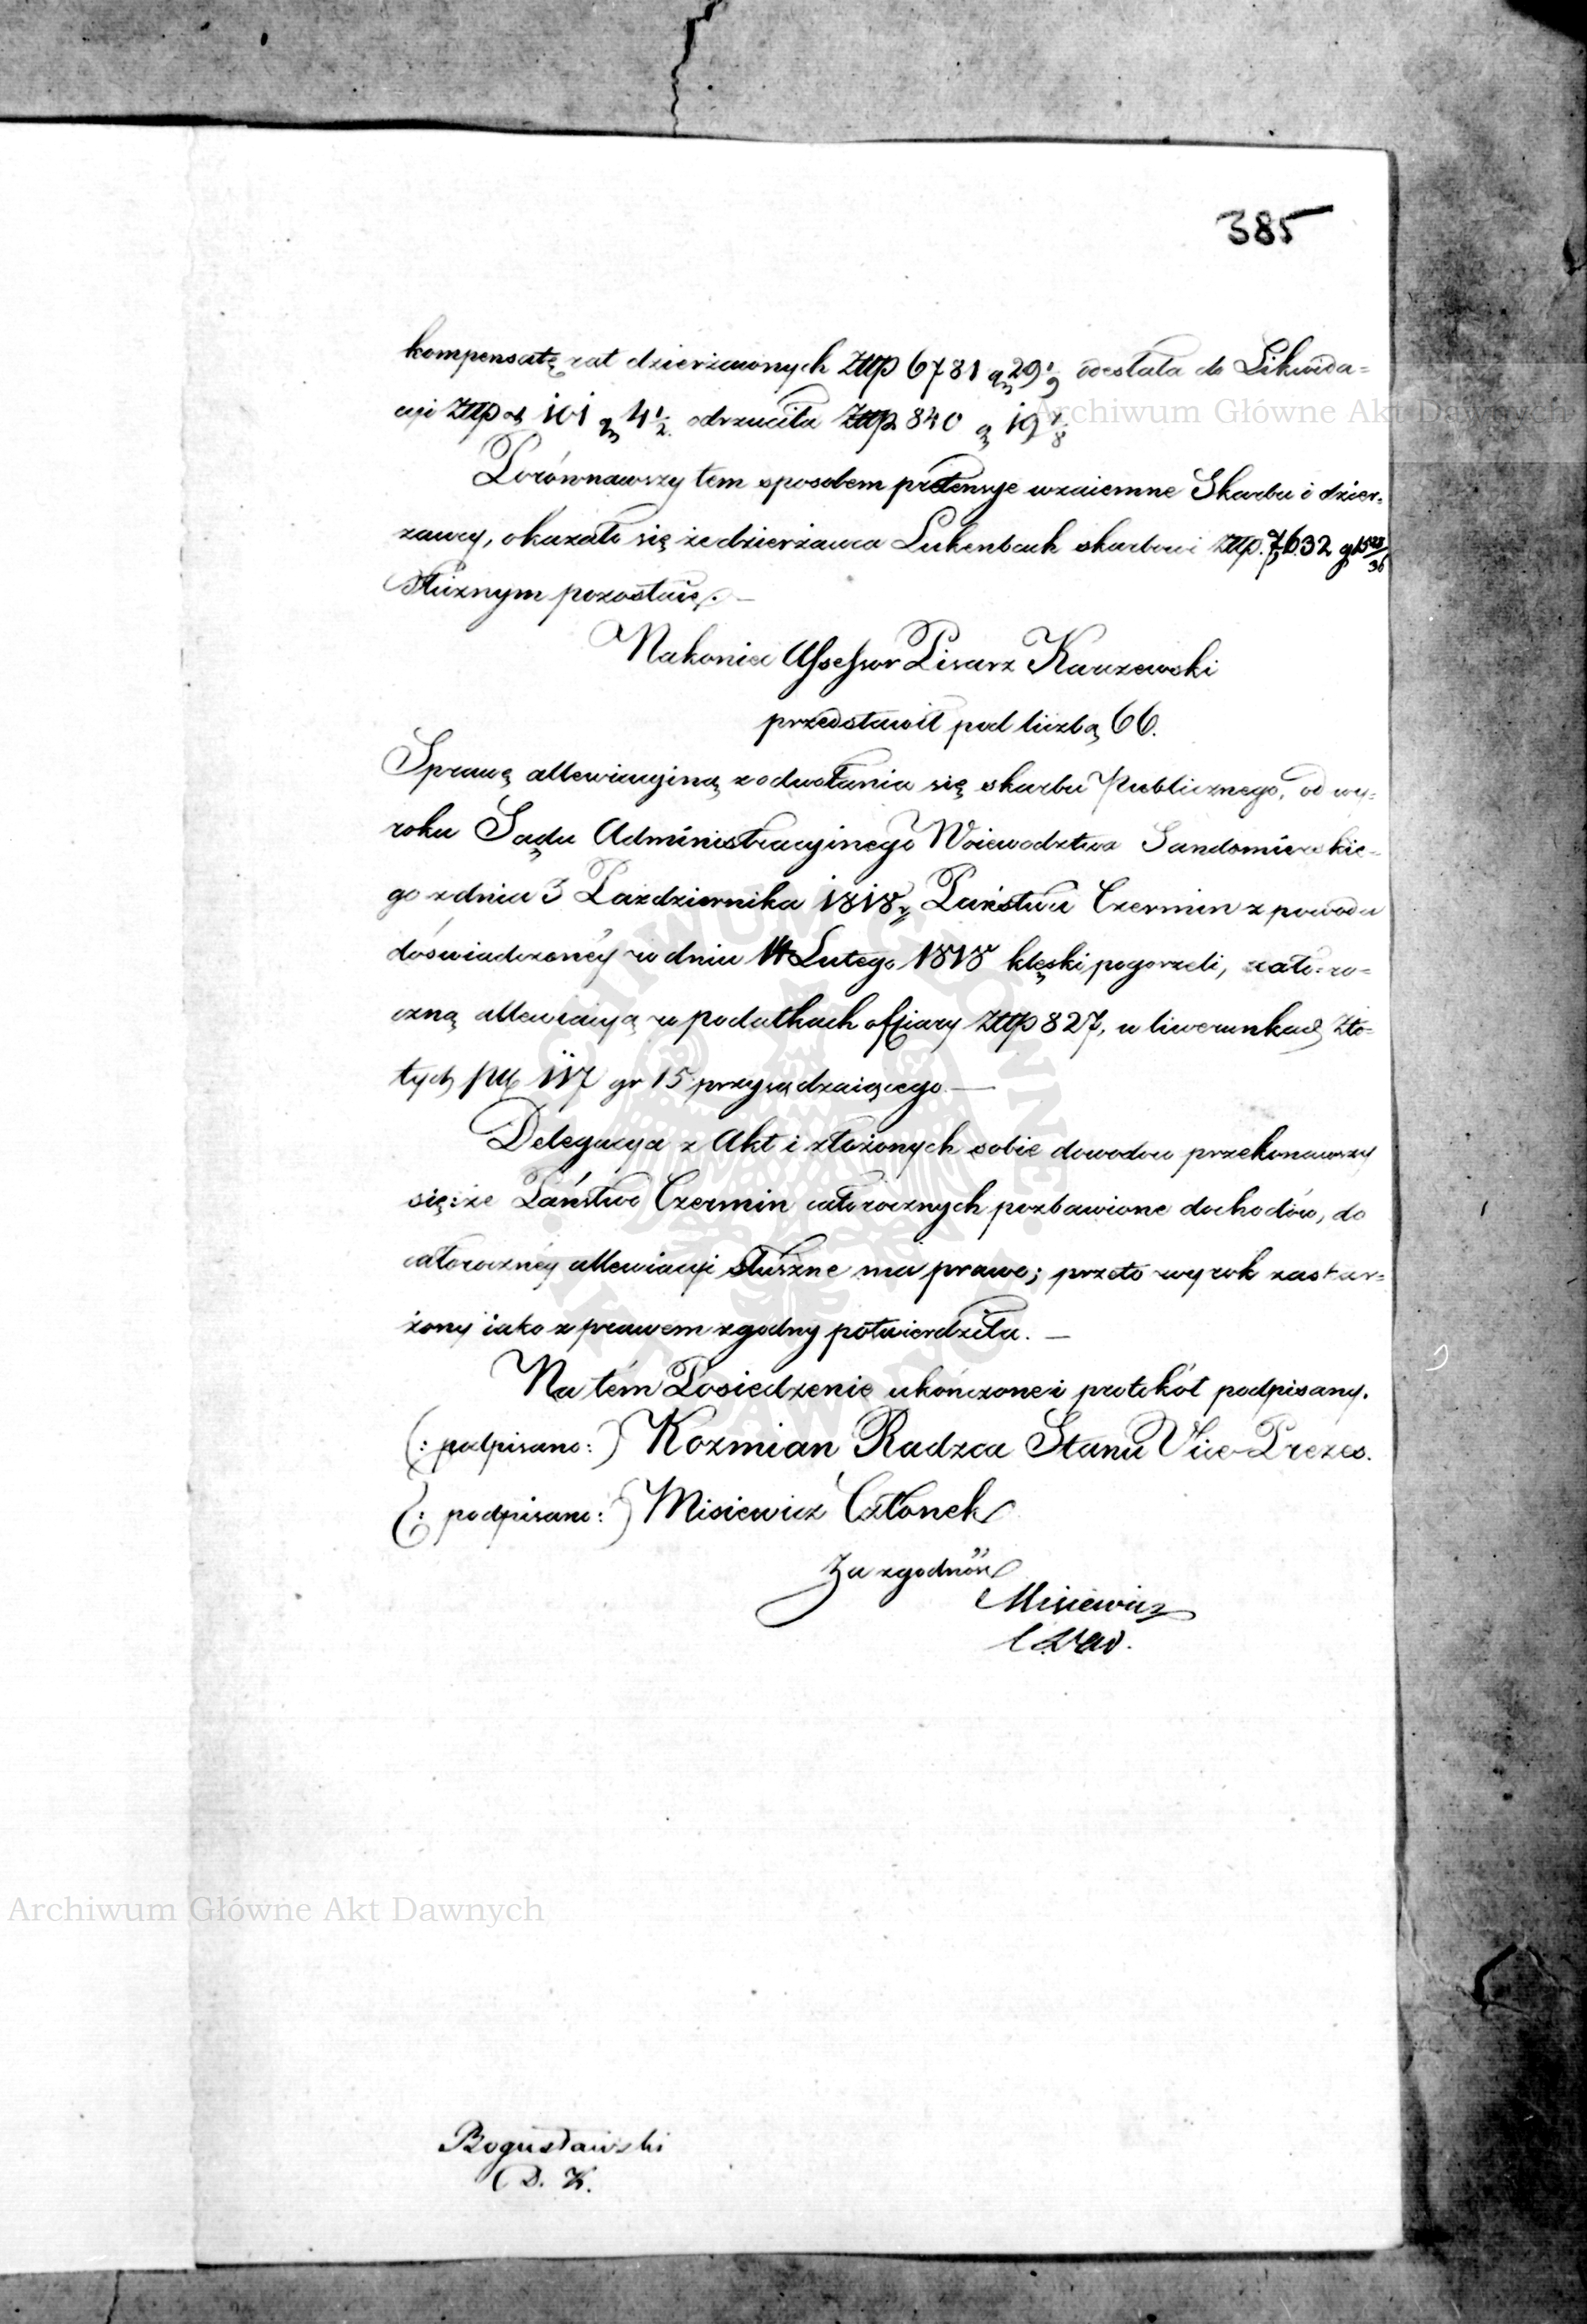 385
kompensatę rat dzierżawnych Złlp 6781 gr 29 1/9 odesłała do Likwida=
cyi Złlp 101 gr 4 1/2. odrzuciła Złlp 840 g 19 1/8
Porównawszy tem sposobem pretensye wzaiemne Skarbu i dzier=
zawcy, okazało się że dzierżawca Lukenback skarbowi Złlp. 7,632 g 15 23/36
dłużnym pozostaie. —
Nakoniec Assessor Pisarz Karczewski
przedstawił pod liczbą 66.
Sprawę allewiacyiną z odwołania się skarbu Publicznego, od wy=
roku Sądu Administracyinego Woiewodztwa Sandomierskie=
go z dnia 3 Pazdziernika 1818 r. Państwu Czermin z powodu
doświadczoney w dniu 14 Lutego 1818 klęski pogorzeli, cało=ro=
czną allewiacyą w podatkach offiary Złlp 827, w liwerunkach Zło=
tych pol 117 gr 15 przysądzaiącego. —
Delegacya z Akt i złożonych sobie dowodow przekonawszy
się: że Państwo Czermin całorocznych pozbawione dochodów, do
całoroczney allewiacyi słuszne ma prawo; przeto wyrok zaskar=
żony iako z prawem zgodny potwierdziła. —
Na tém Posiedzenie ukończone i protokół podpisany.
(: podpisano:) Kozmian Radzca Stanu Vice-Prezes.
(: podpisano:) Misiewicz Członek
Za zgodność
Misiewicz
Bogusławski
D. K.
Archiwum Główne Akt Dawnych
Archiwum Główne Akt Dawnych